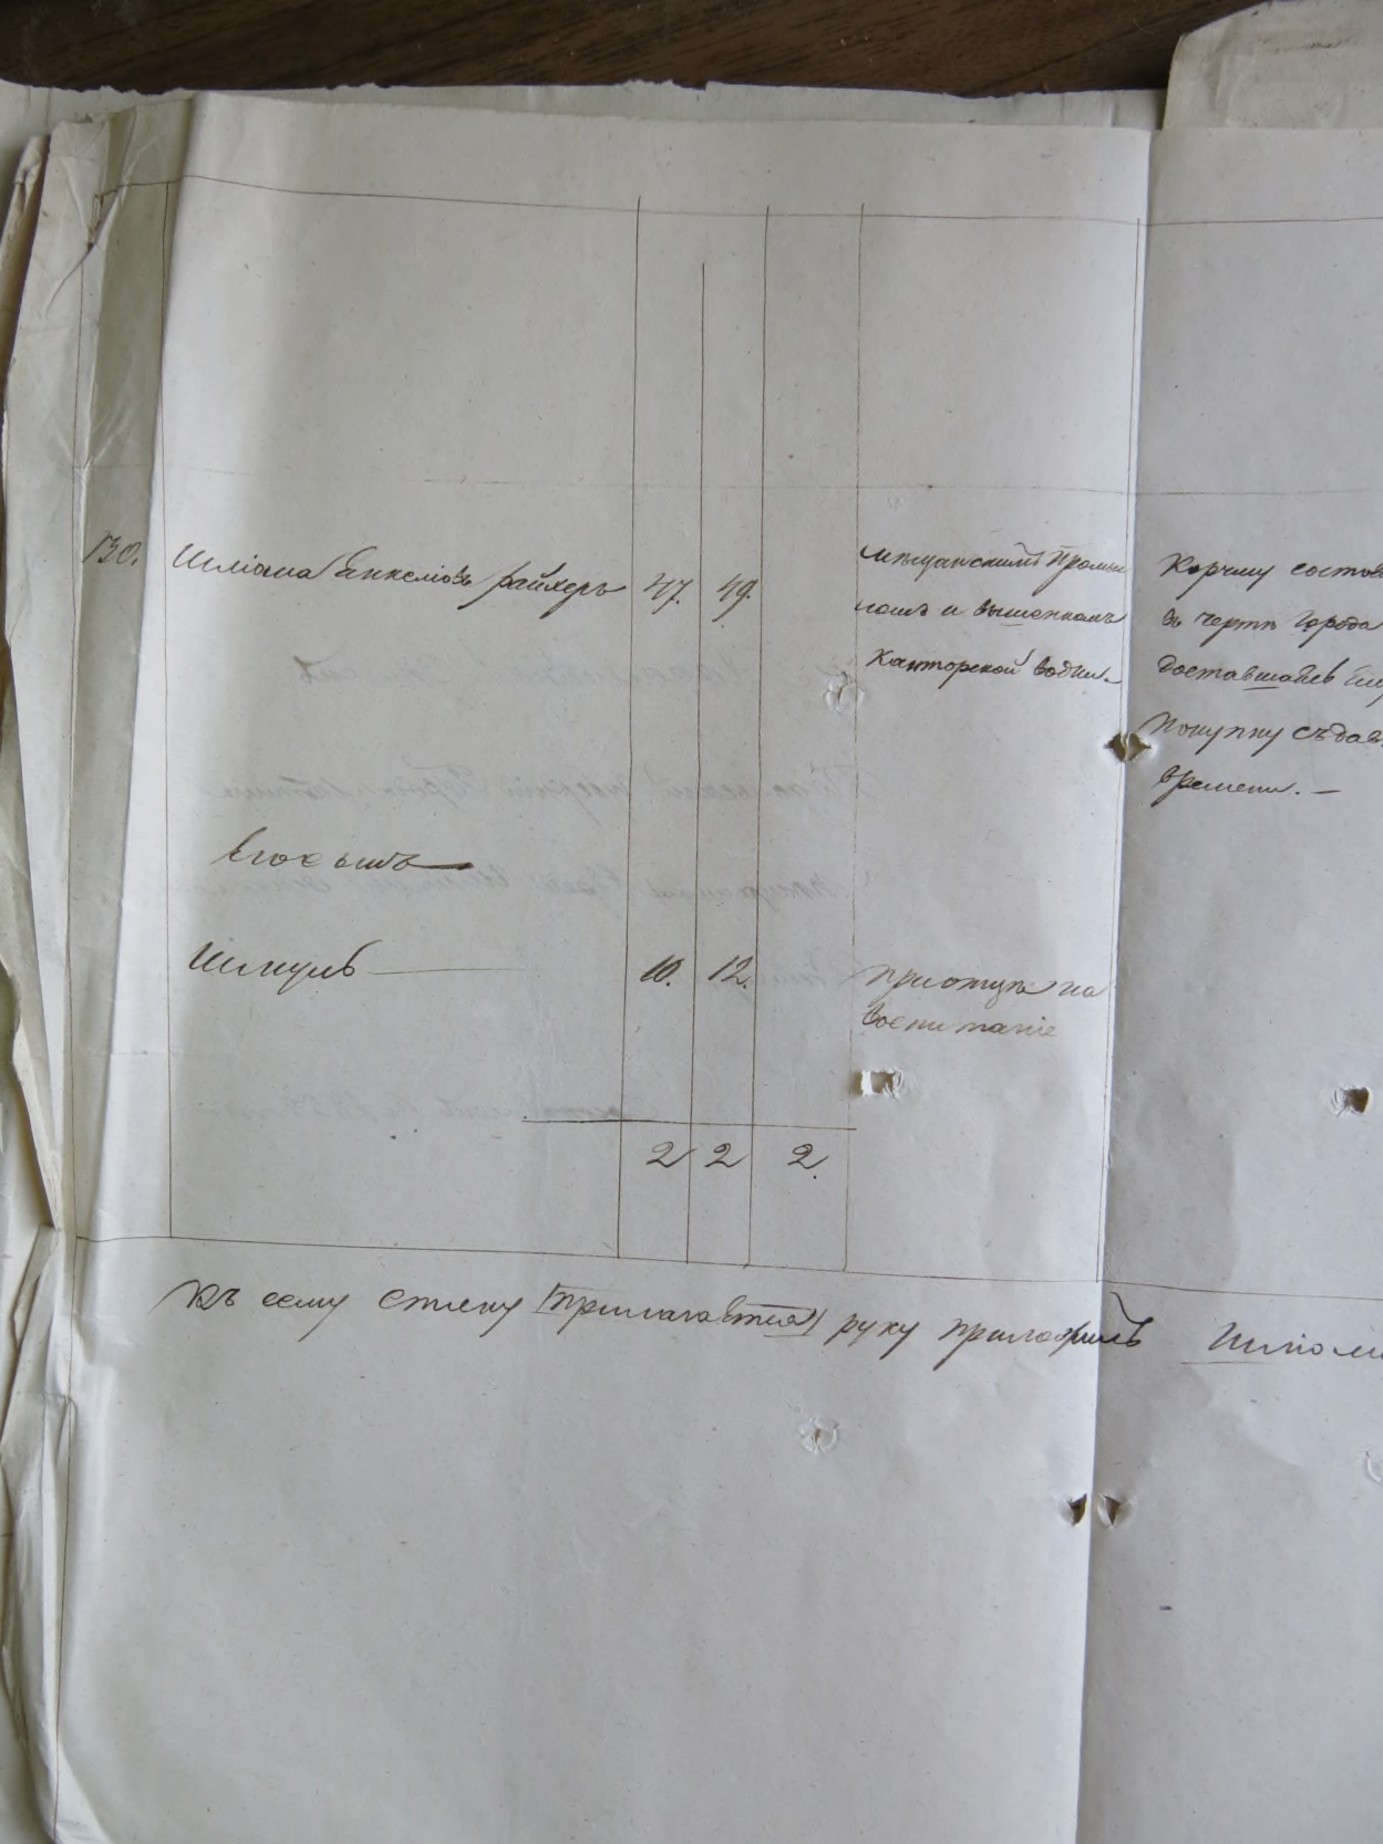 130. Шліома Янкеліовъ райхеръ 47. 49.
мѣщанскимъ Промы
ломъ и вышенкомъ
Канторской водки.
Корчму состов
въ чертѣ Города
доставшаюсь
Покупку съ дав
времени. —
Его сынъ
Шмуль 10. 12. при отцѣ на
воспитаніе
2 2 2.
Къ сему списку руку приложилъ Шліом